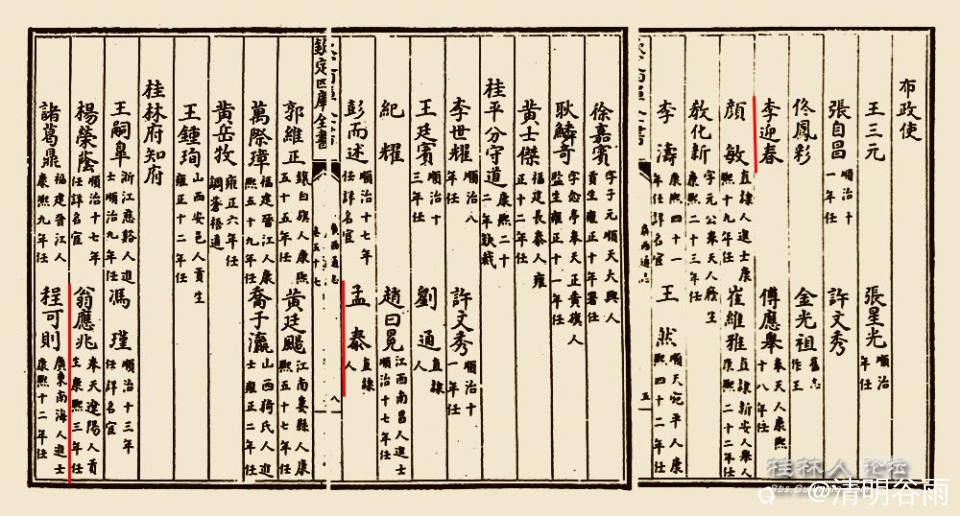 布政使
王三元　張星光 順治 年任
張自昌 順治十一年任　許文秀
佟鳳彩　金光祖 舊志作王
李迎春　傅應舉 奉天人康熙十八年任
顏敏 直隸人進士康熙十九年任　崔維雅 直隸新安人舉人康熙二十二年任
教化新 字元公奉天人廕生康熙二十三年任
李濤 康熙四十一年任詳名宦　王然 順天宛平人康熙四十二年任
廣西通志
五
徐嘉賓 字子元順天大興人貢生雍正十年署任
耿麟奇 字愈亭奉天正黃旗人監生雍正十一年任
黃士傑 福建長泰人雍正十二年任
桂平分守道 康熙二十二年缺裁
李世耀 順治八年任　許文秀 順治十一年任
王廷賓 順治十三年任　劉通 直隸人
紀耀　趙曰冕 江西南昌人進士順治十七年任
彭而述 順治十七年任詳名宦　孟泰 直隸人
欽定四庫全書
廣西通志
卷五十七
八
郭維正 鑲白旗人康熙五十五年任　黃廷颺 江南婁縣人康熙五十七年任
萬際瑋 福建晉江人康熙五十九年任　喬于瀛 山西猗氏人進士雍正二年任
黃岳牧 雍正六年任調蒼梧通
王鍾珣 山西安邑人貢生雍正十二年任
桂林府知府
王嗣臯 浙江慈谿人進士順治九年任　馮瑾 順治十三年任詳名宦
楊榮蔭 順治十七年任詳名宦　翁應兆 奉天遼陽人貢生康熙三年任
諸葛鼎 福建晉江人康熙九年任　程可則 廣東南海人進士康熙十二年任
桂林人论坛
@清明谷雨